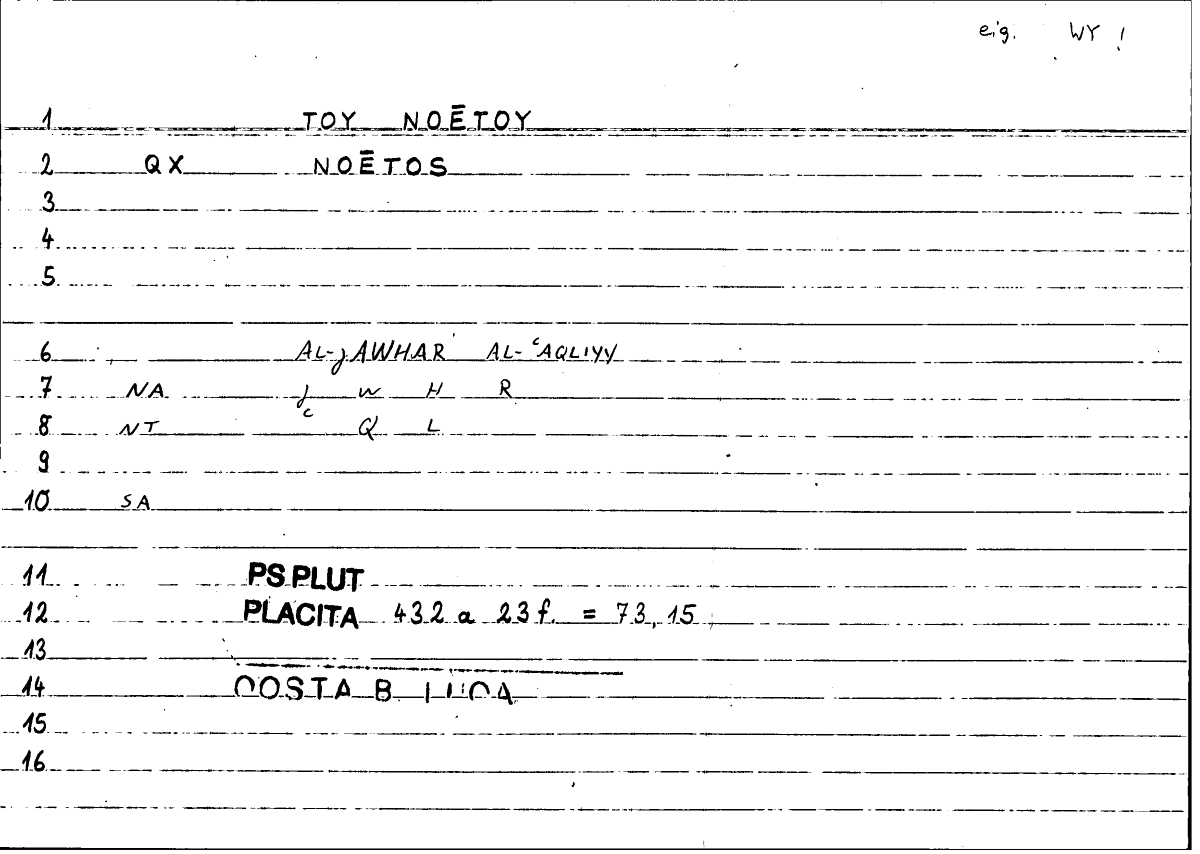 eig. WY !
1 TOY NOĒTOY
2 QX NOĒTOS
3
4
5
6 AL-jAWHAR AL-ʿAQLIYY
7 NA j W H R
8 NT ʿ Q L
9
10 SA
11 PS.PLUT
12 PLACITA 432 a 23 f. = 73,15
13
14 QOSTA B. LUQA
15
16